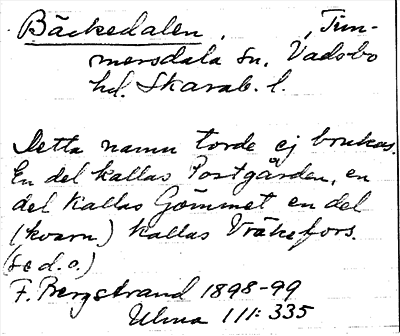 Bäckedalen, , Tim-
mersdala sn, Vadsbo
hd. Skarab. l.
Detta namn torde ej brukas.
En del kallas Postgården, en
del kallas Gömmet en del
(kvarn) kallas Vräkefors.
(se d. o.)
F. Bergstrand 1898-99
Ulma 111: 335